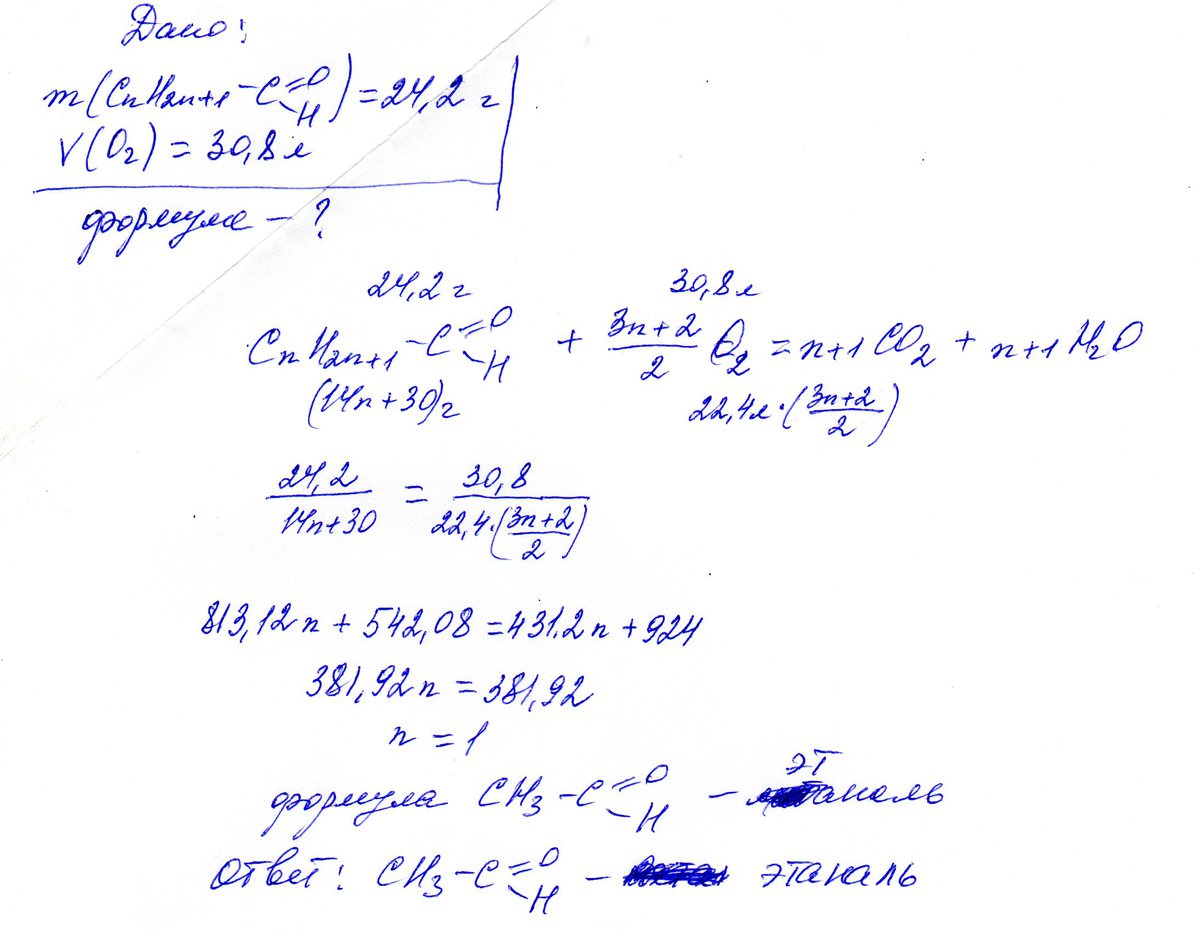 Дано:
m(CnH2n+1-C=O-H)=24,2 г
V(O2)=30,8 л
формула - ?
24,2 г 30,8 л
CnH2n+1-C=O-H + 3n+2/2 O2 = n+1 CO2 + n+1 H2O
(14n+30)г 22,4л·(3n+2/2)
24,2/14n+30 = 30,8/22,4·(3n+2/2)
813,12n + 542,08 = 431,2n + 924
381,92n = 381,92
n = 1
формула CH3-C=O-H - этаналь
Ответ: CH3-C=O-H - этаналь